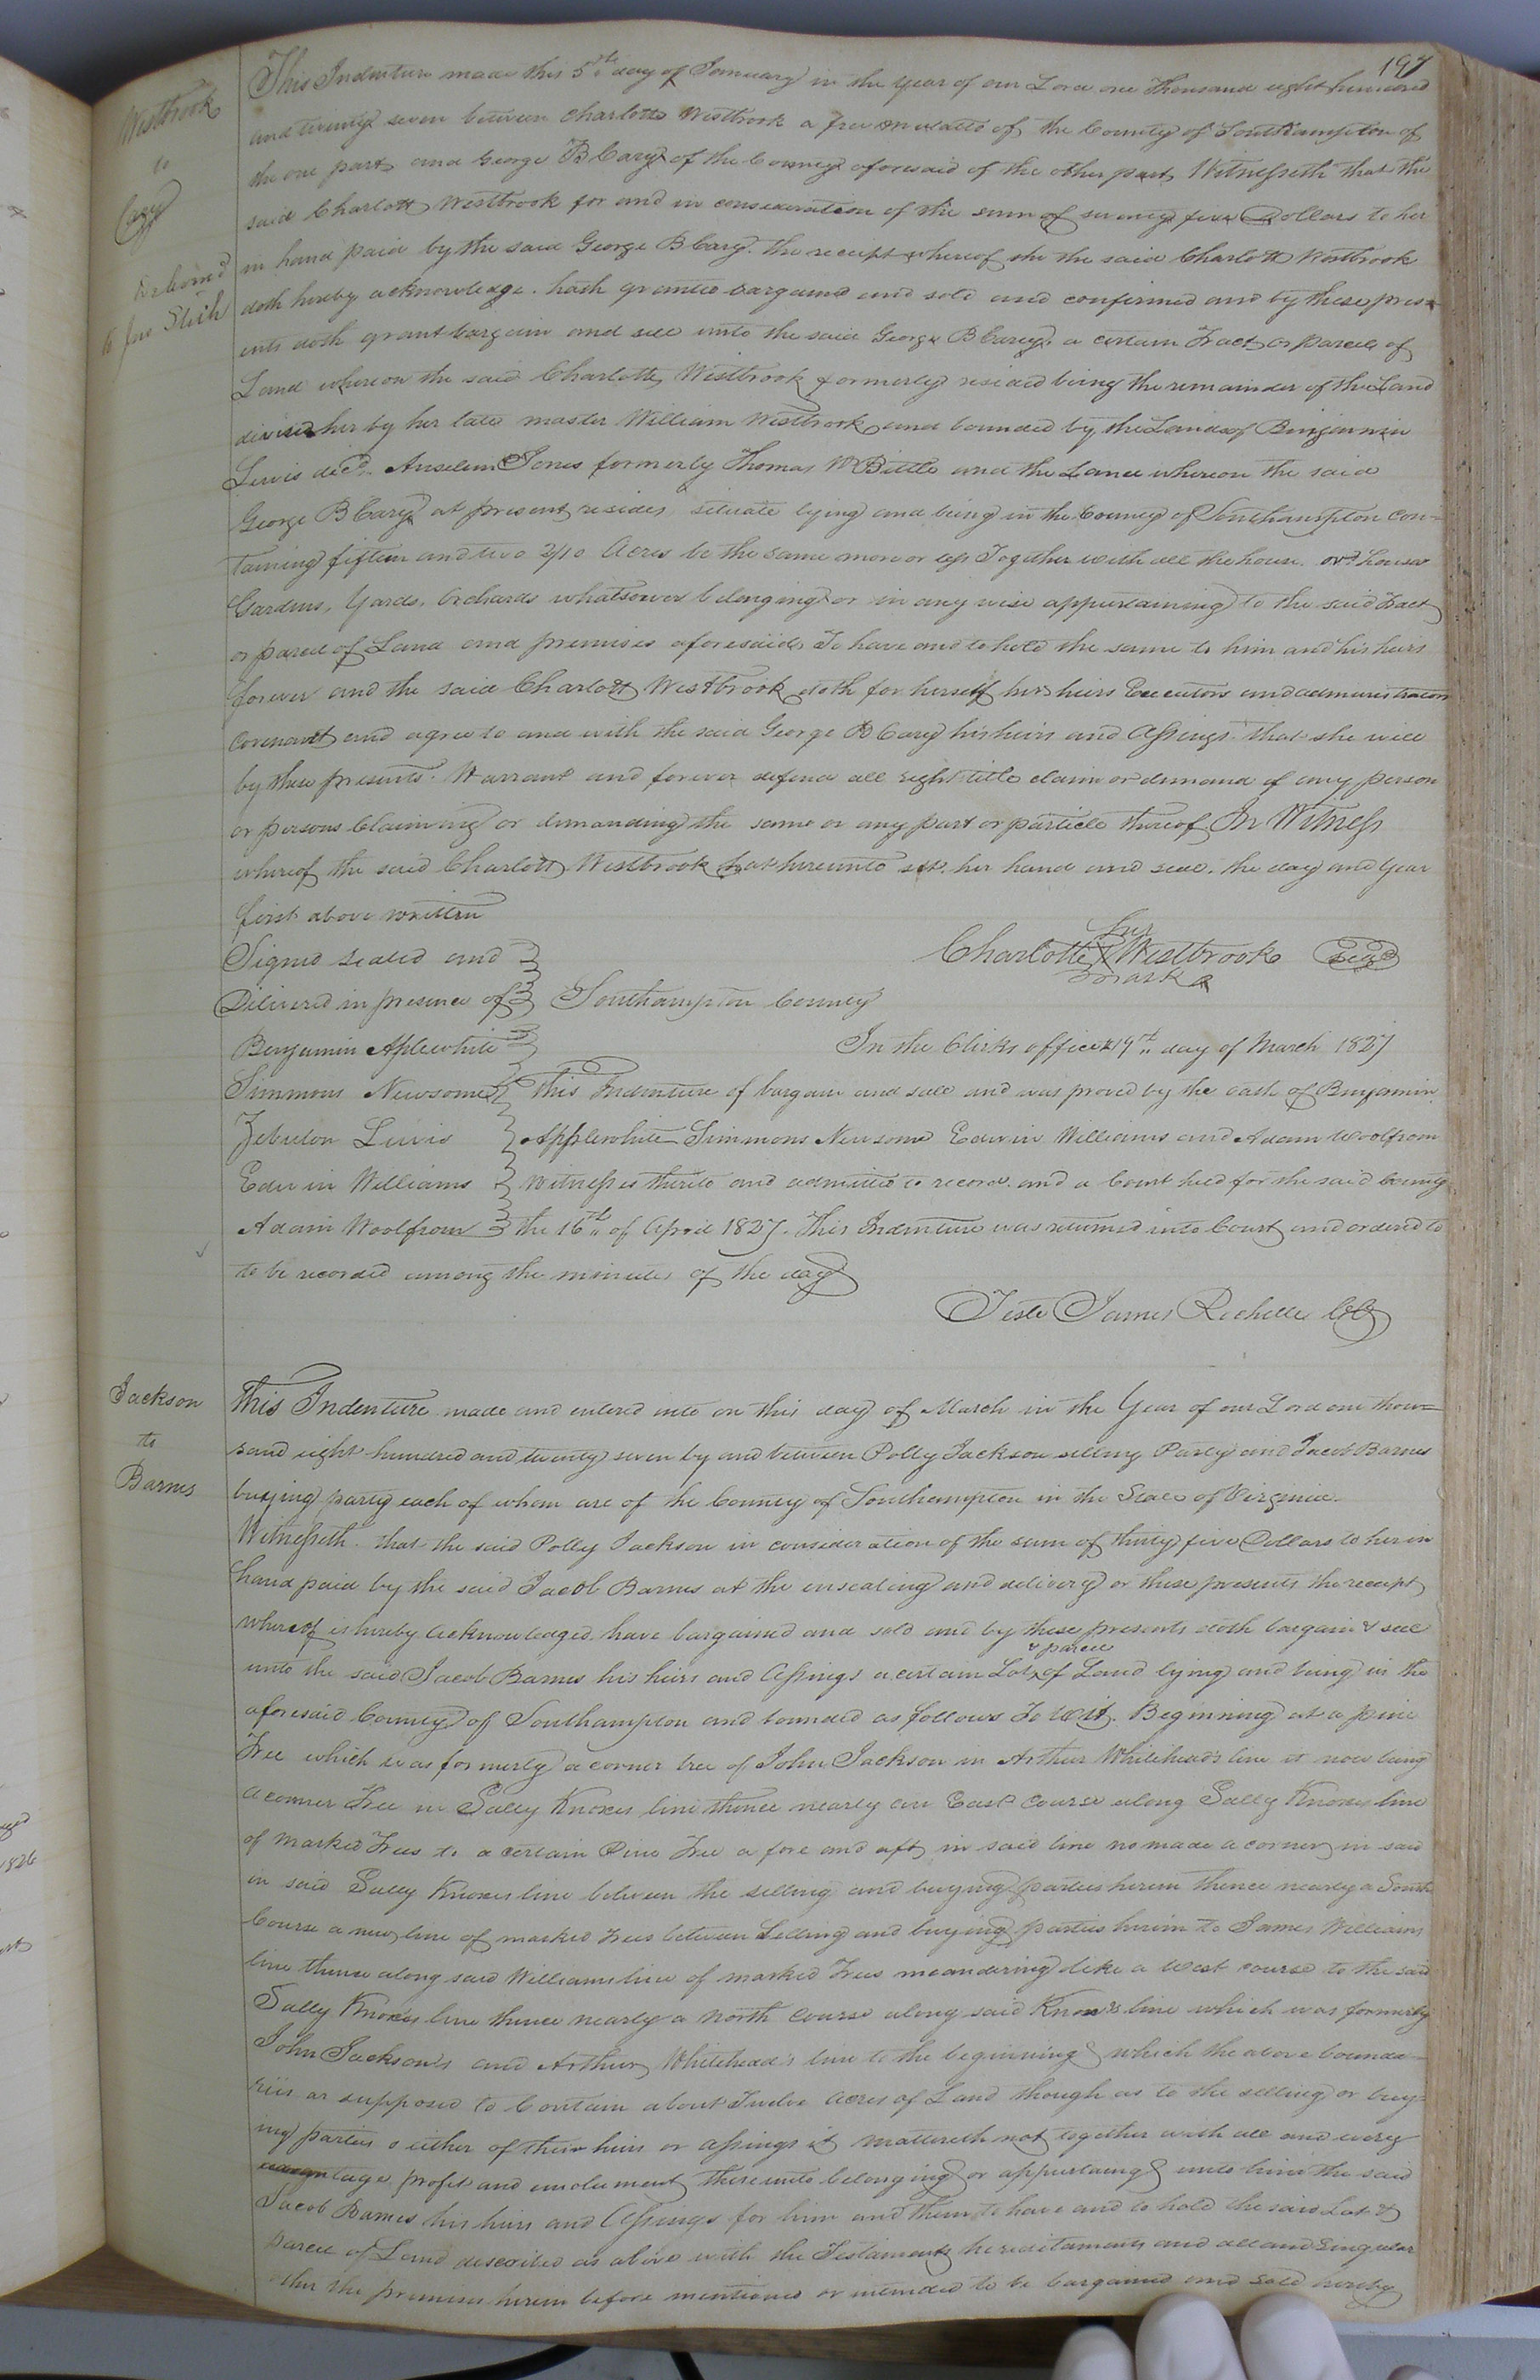 197
Westbrook
to
Cary
Deliver'd
to Jno
This Indenture made this 5th day of January in the year of our Lord one thousand eight hundred
and twenty seven between Charlotte Westbrook a free mulatto of the County of Southampton of
the one part and George B Cary of the County aforesaid of the other part Witnesseth that the
said Charlott Westbrook for and in consideration of the sum of seventy five Dollars to her
in hand paid by the said George B Cary. the receipt whereof she the said Charlott Westbrook
doth hereby acknowledge. hath granted bargained and sold and confirmed and by these pres
ents doth grant bargain and sell unto the said George B Cary, a certain Tract or parcel of
Land whereon the said Charlotte Westbrook formerly resided being the remainder of the Land
devised her by her late master William Westbrook and bounded by the Lands of Benjamin
Lewis decd. Anselem Jones formerly Thomas W Bittle and the Land whereon the said
George B Cary at present resides, situate lying and being in the County of Southampton con=
taining fifteen and two 2/10 Acres be the same more or less Together with all the house. houses
Gardens, Yards, Orchards whatsoever belonging or in any wise appertaining to the said Tract
or parcel of Land and premises aforesaid, To have and to hold the same to him and his heirs
forever and the said Charlott Westbrook doth for herself her heirs Executors and administrators
covenant and agree to and with the said George B Cary his heirs and Assings that she will
by these presents. Warrant and forever defend all right title claim or demand of any person
or persons Claiming or demanding the same or any part or particle thereof In Witness
whereof the said Charlott Westbrook hat hereunto set her hand and seal. the day and year
first above written
Signed sealed and
Delivered in presence of
her
Charlotte X Westbrook Seal
mark
Southampton County
Benjamin Aplewhite
In the Clerks office 19th day of March 1827
Simmons Newsome
This Indenture of bargain and sale and was proved by the oath of Benjamin
Zebulon Lewis
Applewhite Simmons Newsome Edwin Williams and Adam Woolfrom
Edwin Williams
Witnesses thereto and admitted to record. and a Court held for the said County
Adam Woolfrom
the 16th of April 1827. This Indenture was returned into Court and ordered to
to be recorded among the minutes of the day
Teste James Rochelle
Jackson
to
Barnes
This Indenture made and entered into on this day of March in the Year of our Lord one thou=
sand eight hundred and twenty seven by and between Polly Jackson selling Party and Jacob Barnes
buying party each of whom are of the County of Southampton in the State of Virginia.
Witnesseth that the said Polly Jackson in consideration of the sum of thirty five Dollars to her in
hand paid by the said Jacob Barnes at the ensealing and delivery or these presents the receipt
whereof is hereby Acknowledged, have bargained and sold and by these presents doth bargain & sell
& parcel
unto the said Jacob Barnes his heirs and Assings a certain Lot of Land lying and being in the
aforesaid County of Southampton and bounded as follows To Wit. Beginning at a pine
Tree which was formerly a corner tree of John Jackson in Arthur Whitehead's line it now being
a corner Tree in Sally Knoxes line thence nearly an East course along Sally Knoxes line
of marked Trees to a certain Pine Tree a fore and aft in said line no made a corner in said
in said Sally Knoxes line between the selling and buying parties herein thence nearly a South
Course a new line of marked trees between Selling and buying parties herein to James Williams
line thence along said Williams line of marked Trees meandering like a West course to the said
Sally Knoxes line thence nearly a north course along said Knoxes line which was formerly
John Jackson's and Arthur Whitehead's line to the beginning which the above bounda=
ries ar supposed to Contain about Twelve acres of Land though as to the selling or buy=
ing parties o either of their heirs or assings it mattereth not together with all and every
profit and emolument thereunto belonging or appertaing unto him the said
Jacob Barnes his heirs and Assings for him and them to have and to hold the said Lot &
parcel of Land described as above with the Testaments hereditaments and all and Singular
other the premises herein before mentioned or intended to be bargained and sold hereby